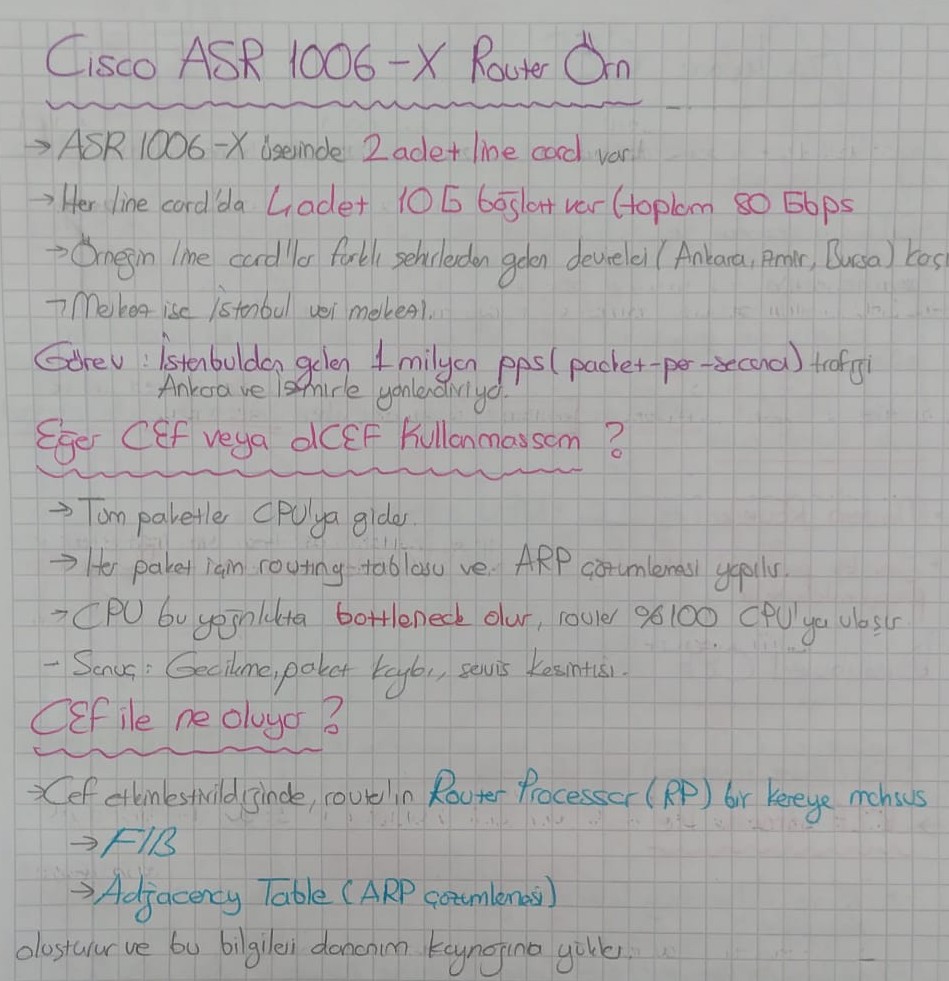 Cisco ASR 1006-X Router Örn
→ ASR 1006-X üserinde 2 adet line card var.
→ Her line card'da 4 adet 10G bağlantı var (toplam 80 Gbps
→ Örneğin line card'lar farklı şehirlerden gelen devreleri (Ankara, İzmir, Bursa)
→ Merkez ise İstanbul veri merkezi.
Görev : İstanbuldan gelen 1 milyon pps (packet-per-second) trafiği
Ankara ve İzmir'e yönlendiriyor.
Eğer CEF veya dCEF kullanmassam ?
→ Tüm paketler CPU'ya gider.
→ Her paket için routing tablosu ve ARP çözümlemesi yapılır.
→ CPU bu yoğunlukta bottleneck olur, router %100 CPU'ya ulaşır
- Sonuç : Gecikme, paket kaybı, servis kesintisi.
CEF ile ne oluyor ?
→ Cef etkinleştirildiğinde, router'ın Router Processor (RP) bir kereye mahsus
→ FIB
→ Adjacency Table (ARP çözümlemesi)
oluşturur ve bu bilgileri donanım kaynağına yükler.